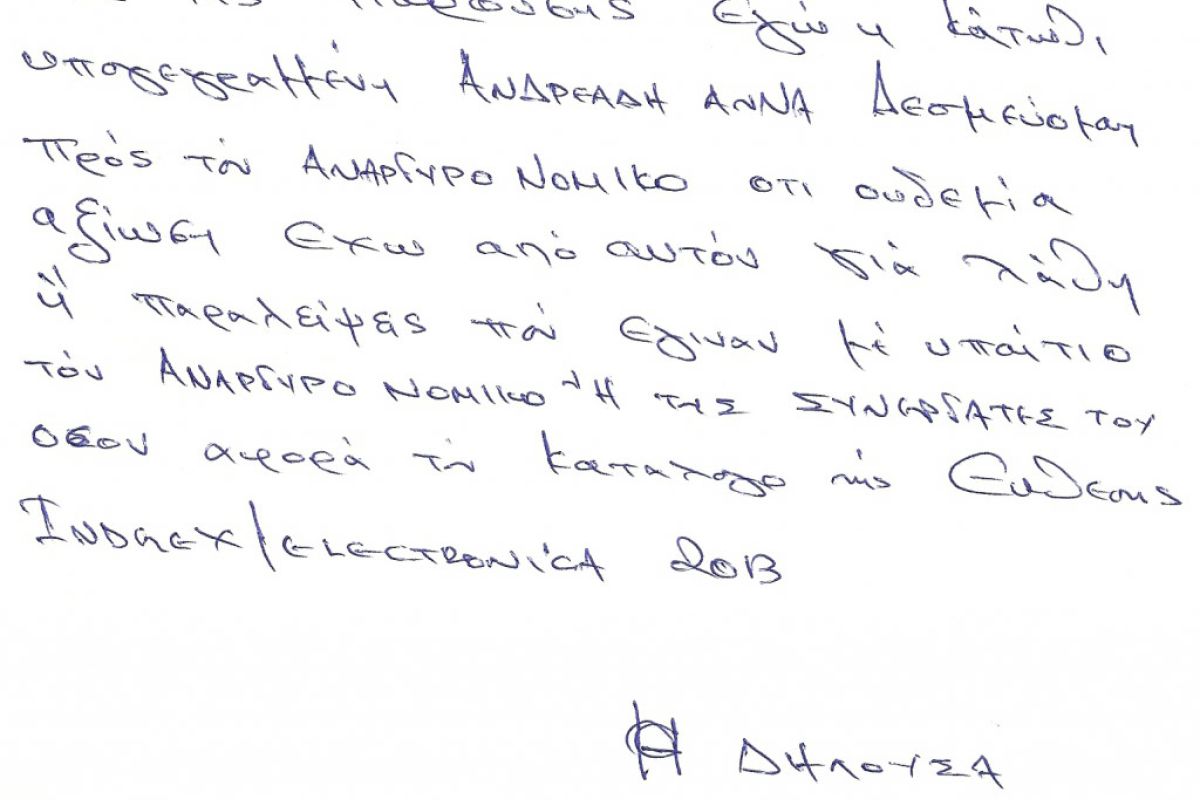 της παρούσης Εγώ η κάτωθι
υπογεγραμμένη ΑΝΔΡΕΑΔΗ ΑΝΝΑ Δεσμεύομαι
πρός τόν ΑΝΑΡΓΥΡΟ ΝΟΜΙΚΟ οτι ουδεμία
αξίωση έχω από αυτόν γιά λάθη
ή παραλείψεις πού έγιναν μέ υπαίτιο
τόν ΑΝΑΡΓΥΡΟ ΝΟΜΙΚΟ Ή ΤΗΣ ΣΥΝΕΡΓΑΤΕΣ ΤΟΥ
οσον αφορά τόν καταλογο της Εκθεσης
/ELECTRONICA 2013
Η ΔΗΛΟΥΣΑ